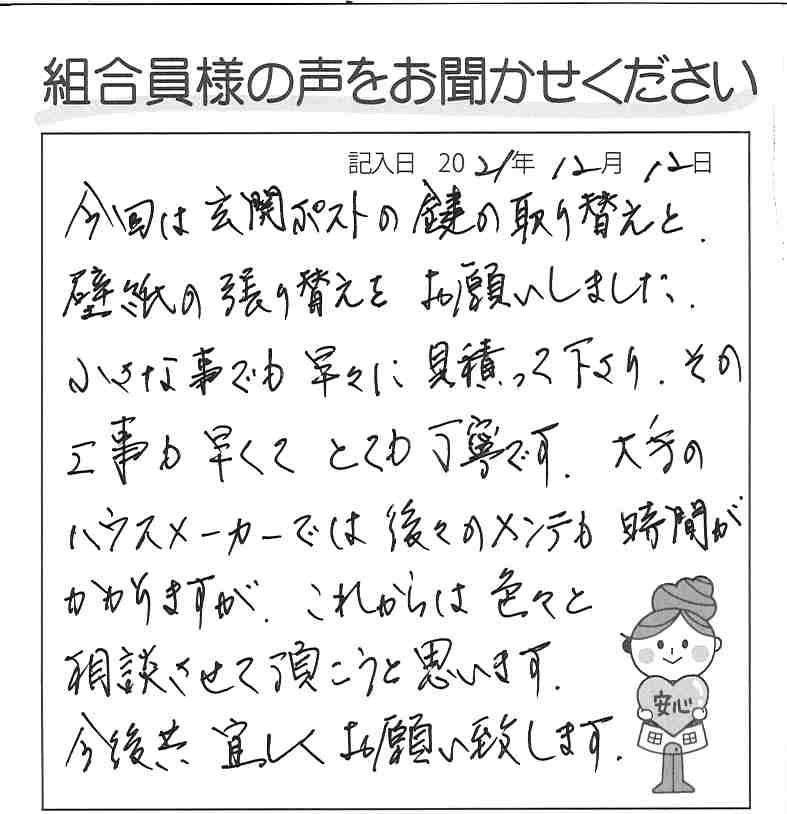 組合員様の声をお聞かせください
記入日 2021年 12月 12日
今回は 玄関ポストの 鍵の 取り替えと.
壁紙の 張り替えを お願いしました.
小さな事でも 早々に 見積って下さり. その
工事も 早くて とても 丁寧です. 大手の
ハウスメーカーでは 後々のメンテも 時間が
かかりますが. これからは 色々と
相談させて頂こうと思います.
今後共 宜しく お願い致します.
安心